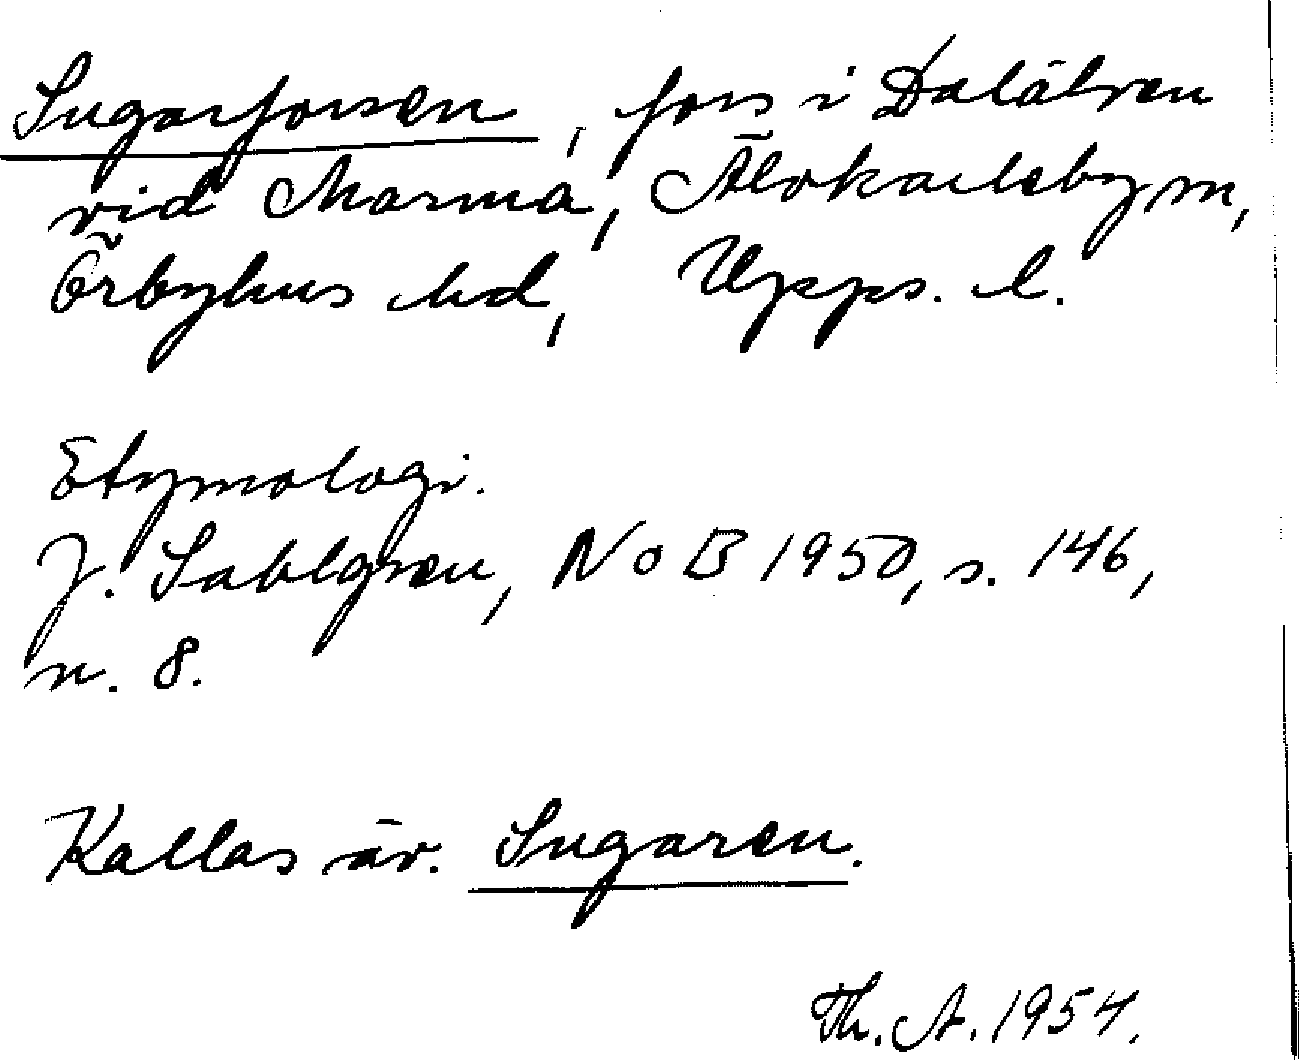 Sugarforsen, fors i Dalälven
vid Marma, Älvkarleby sn,
Örbyhus hd, Upps. l.
Etymologi.
J. Sahlgren, NoB 1950, s. 146,
n. 8.
Kallas äv. Sugaren.
Th. A. 1954.